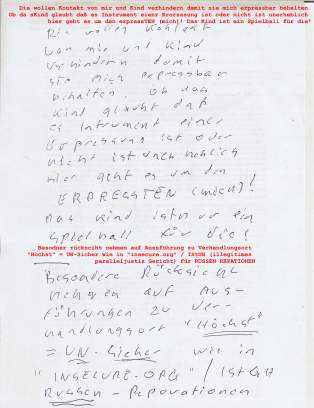 Die wollen Kontakt von mir und Kind verhindern damit sie mich erpressbar behalten.
Ob da sKind glaubt daß es Instrument einer Erpressung ist oder nicht ist unerheblich
hier geht es um den erpressTEN (mich)! Das Kind ist ein Spielball für die!
Die wollen Kontakt
von mir und Kind
verhindern damit
sie mich erpressbar
behalten. Ob das
Kind glaubt daß
es Intrument einer
Erpressung ist oder
nicht ist unerheblich
hier geht es um den
ERPRESSTEN (mich)!
Das Kind ist nur ein
Spielball für die!
Besodner rücksciht nehmen auf Aussführung zu Verhandlungsort
"Höchst" = UN-Sicher wie in "insecure.org" / IStGH (illegitimes
paralleljustiz Gericht) für RUSSEN REPATIONEN
Besondere Rücksicht
nehmen auf Aus-
führungen zu Ver-
handlungsort "Höchst"
= UN-Sicher wie in
"INSECURE.ORG" / IStGH
Russen-Reparationen.